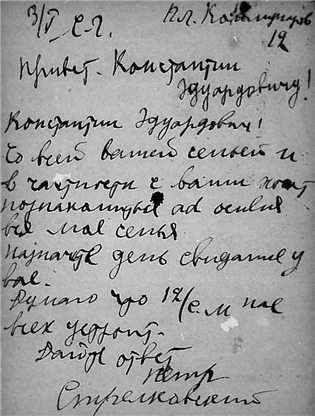 3/V с.г. Пл. Коммунаров
12
Привет Константин
Эдуардовичу!
Константин Эдуардович!
Со всей вашей семьей и
в частности с вами хочет
познакомиться ad oculus
вся моя семья.
Назначте день свидания у
вас.
Думаю что 12/с.м нас
всех устроит.
Дайте ответ
Петр
Стрелковский